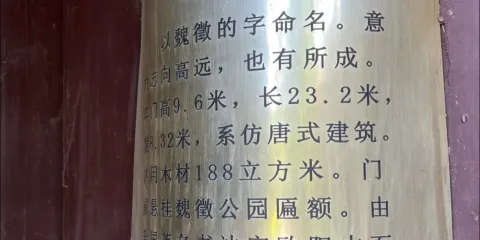 以魏徵的字命名。意
志向高远，也有所成。
门高9.6米，长23.2米，
8.32米，系仿唐式建筑。
共用木材188立方米。门
悬挂魏徵公园匾额。由